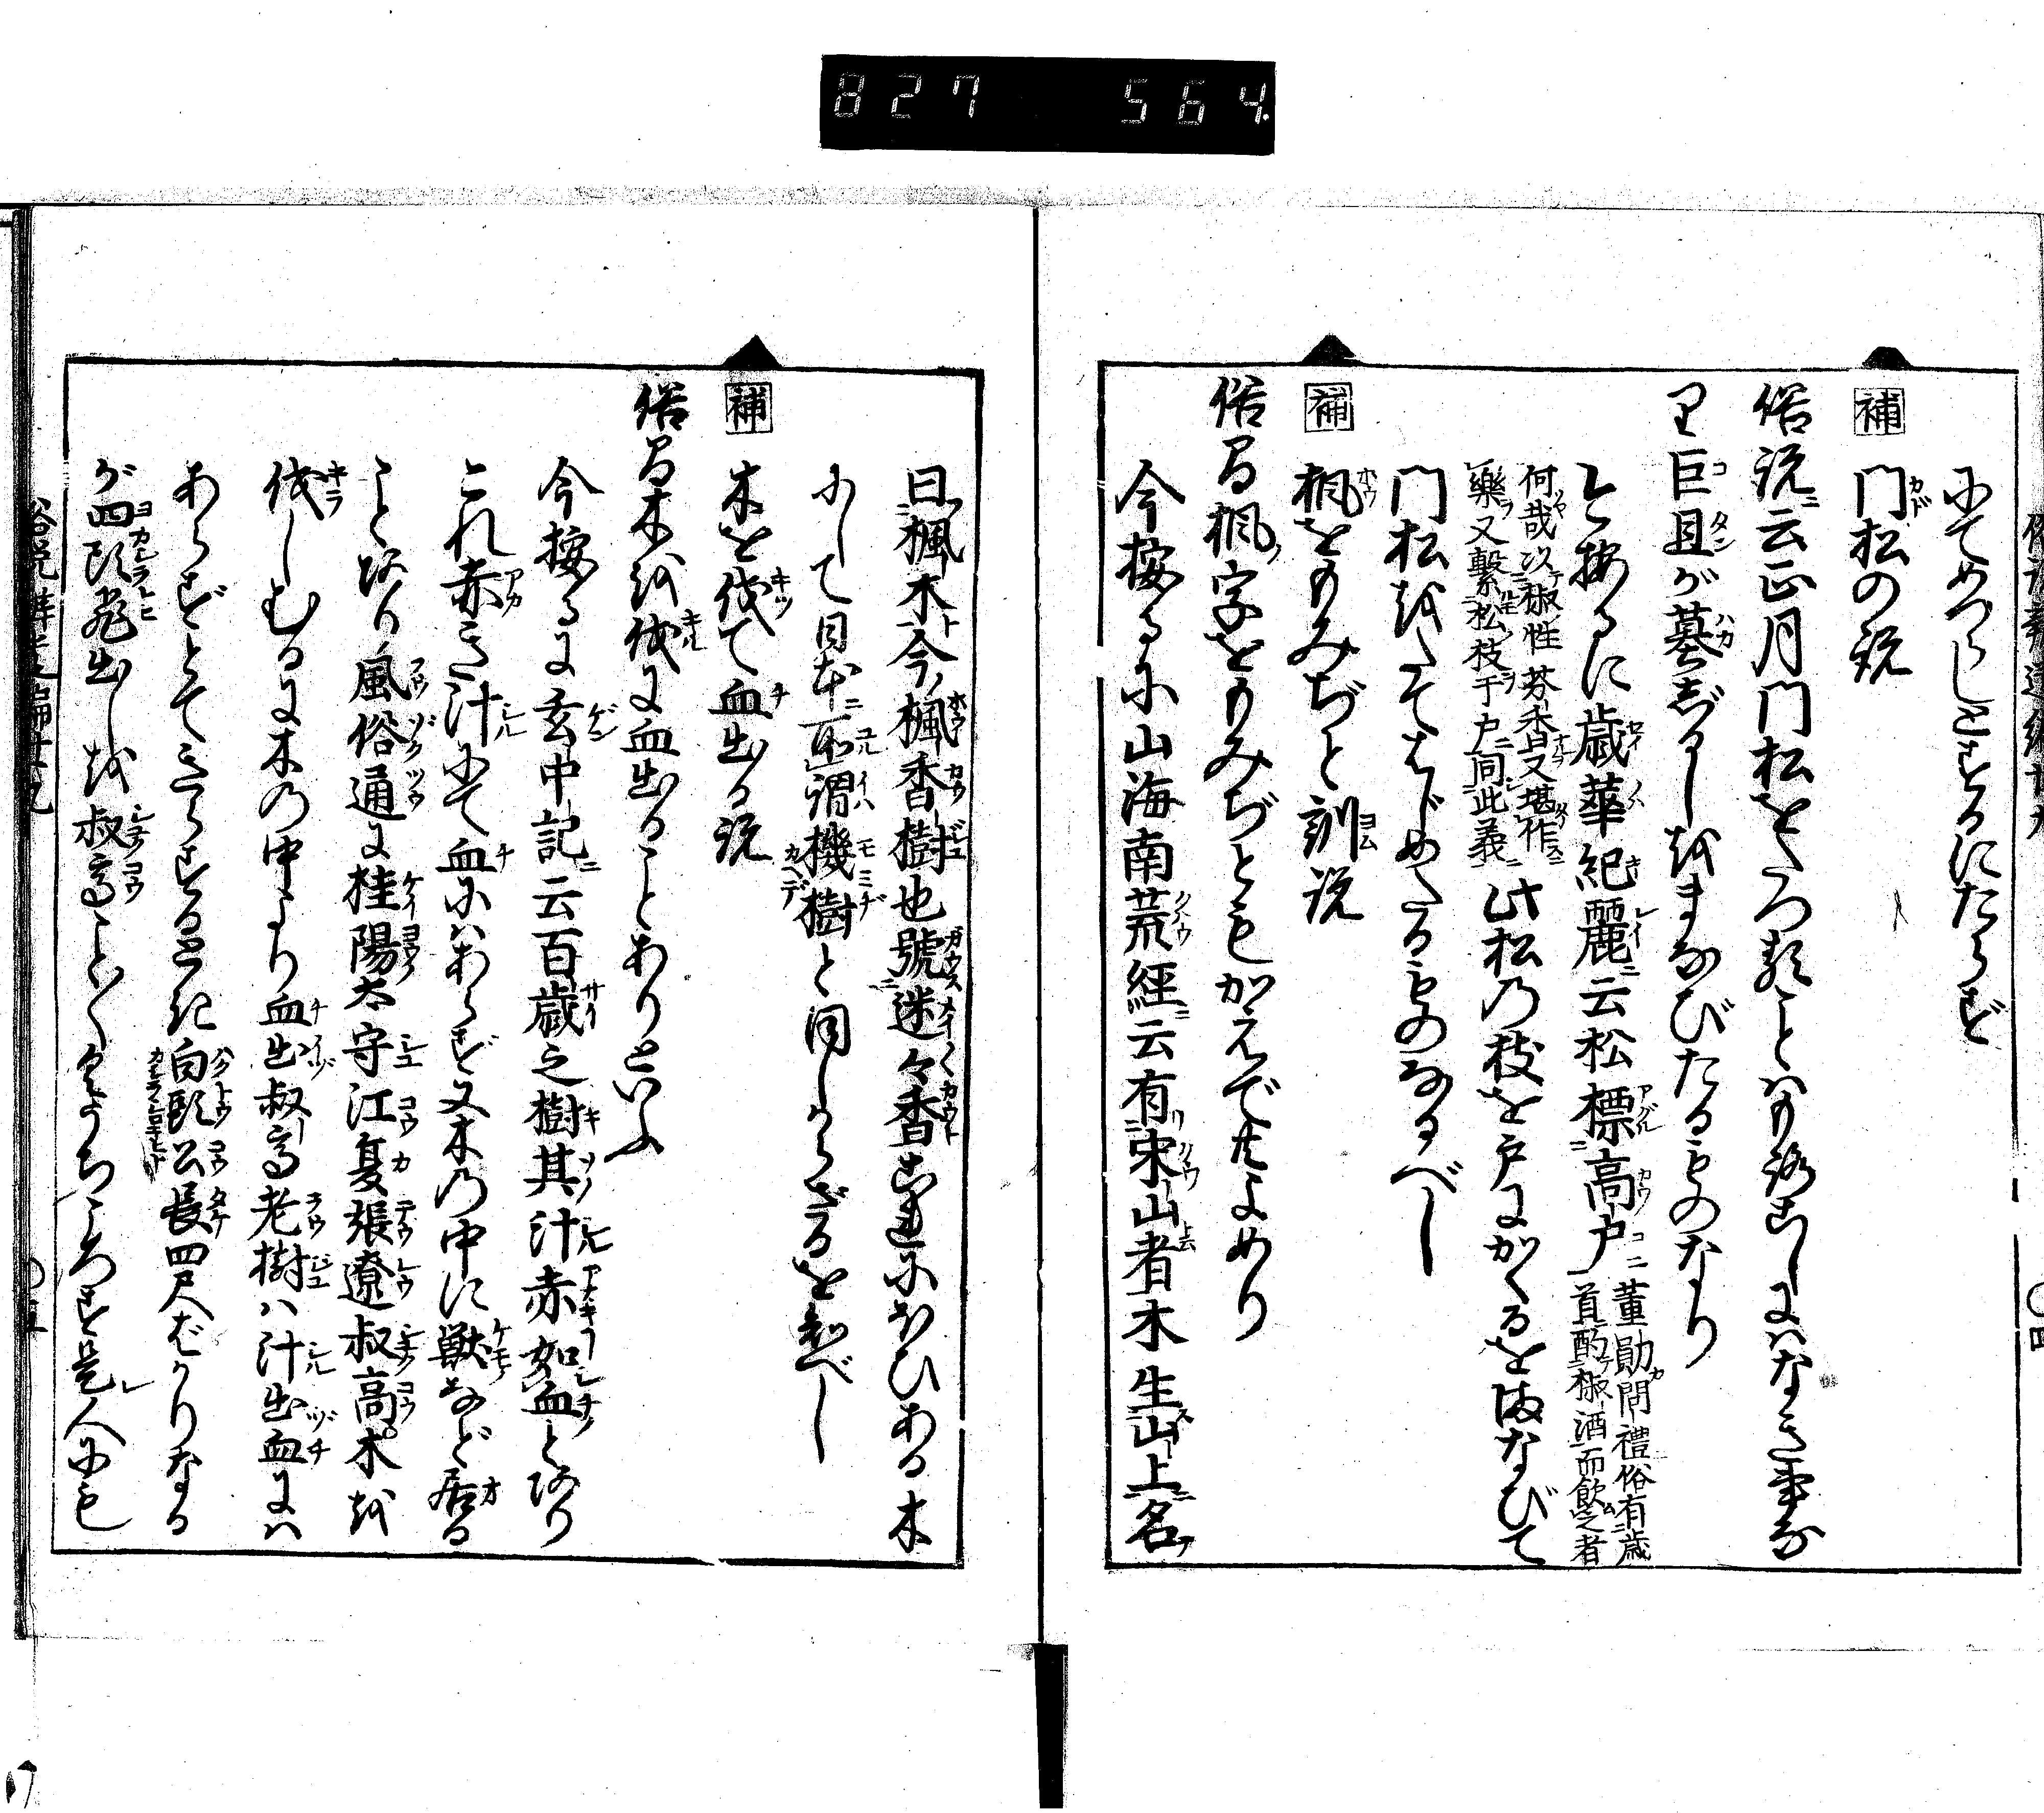 827 564
にてめづらしとするにたらず
補 門松の説
俗説ニ云正月門松をたつることはもろこしにはなき事な
り巨旦が墓じるしをまなびたるものなり
今按るに歳華紀麗ニ云松標高戸 董勛問禮俗有歳首酌椒酒而飲之者
何哉以椒性芬香又堪作藥又繫松枝于戸同此義 此松の枝を戸にかくるをまなびて
門松をたてはじめたるものなるべし
補 楓をもみぢと訓説
俗間楓字をもみぢともかえでともよめり
今按るに山海南荒經ニ云有宋山者木生山上名
曰楓木今楓香樹也號迷々香これにほひある木
にして日本ニ所謂機樹と同じからざるを知べし
補 木を伐て血出る説
俗間木を伐に血出ることありといふ
今按るに玄中記ニ云百歳之樹其汁赤如血とあり
これ赤き汁にて血にはあらず又木の中に獣など居る
ことあり風俗通に桂陽太守江夏張遼叔高木を
伐しむるに木の中より血出叔高老樹ハ汁出血には
あらずとてきらするとき白頭公長四尺ばかりなる
が四頭飛出しを叔高ことごとくうちころす是人にも